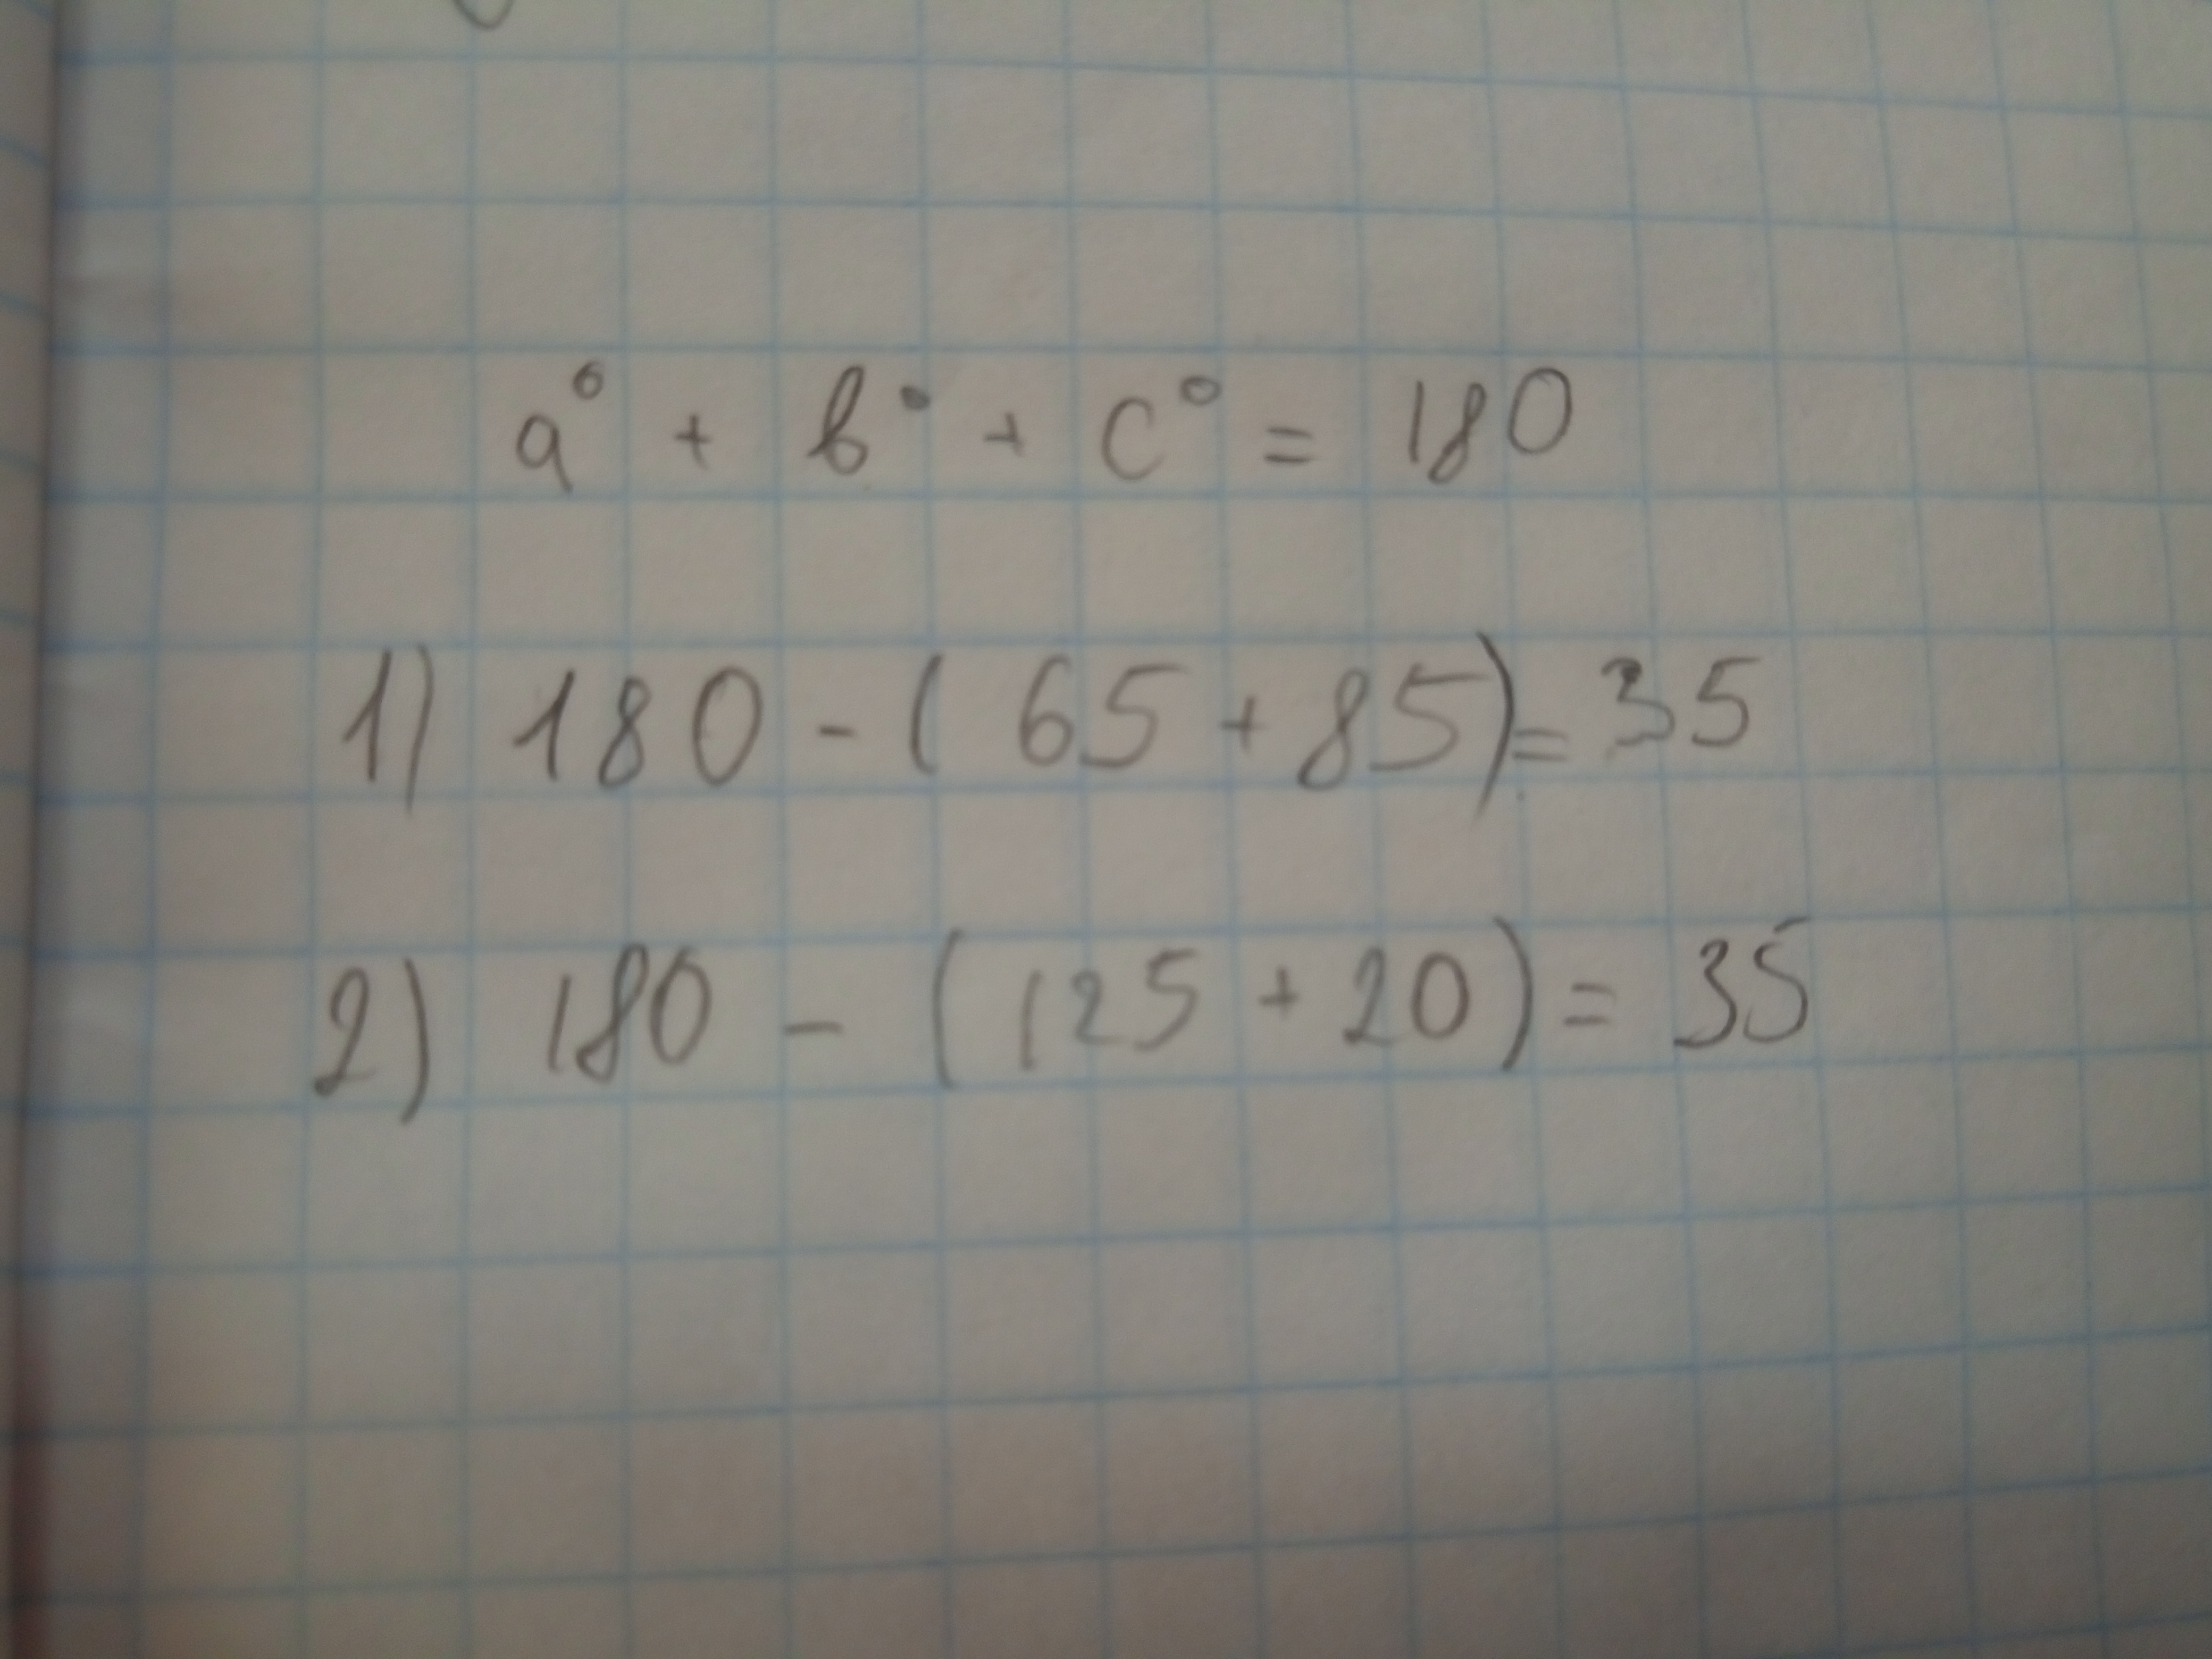 a° + b° + c° = 180
1) 180 - ( 65 + 85) = 35
2) 180 - (125 + 20) = 35